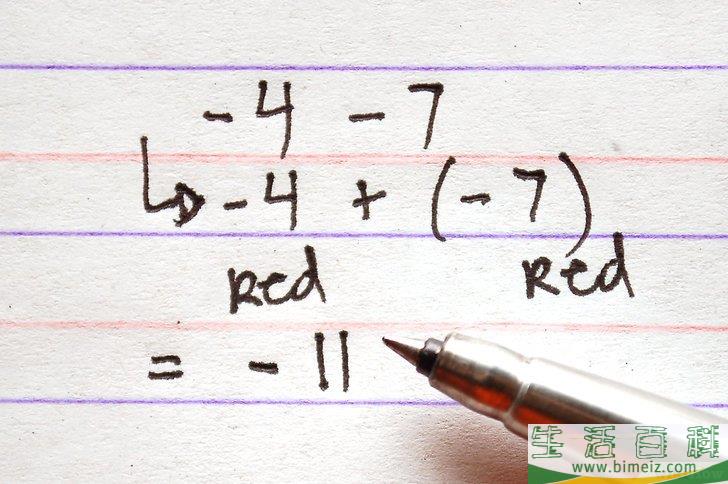 -4 -7
-4 + (-7)
Red Red
= -11
生活百科
www.bimeiz.com